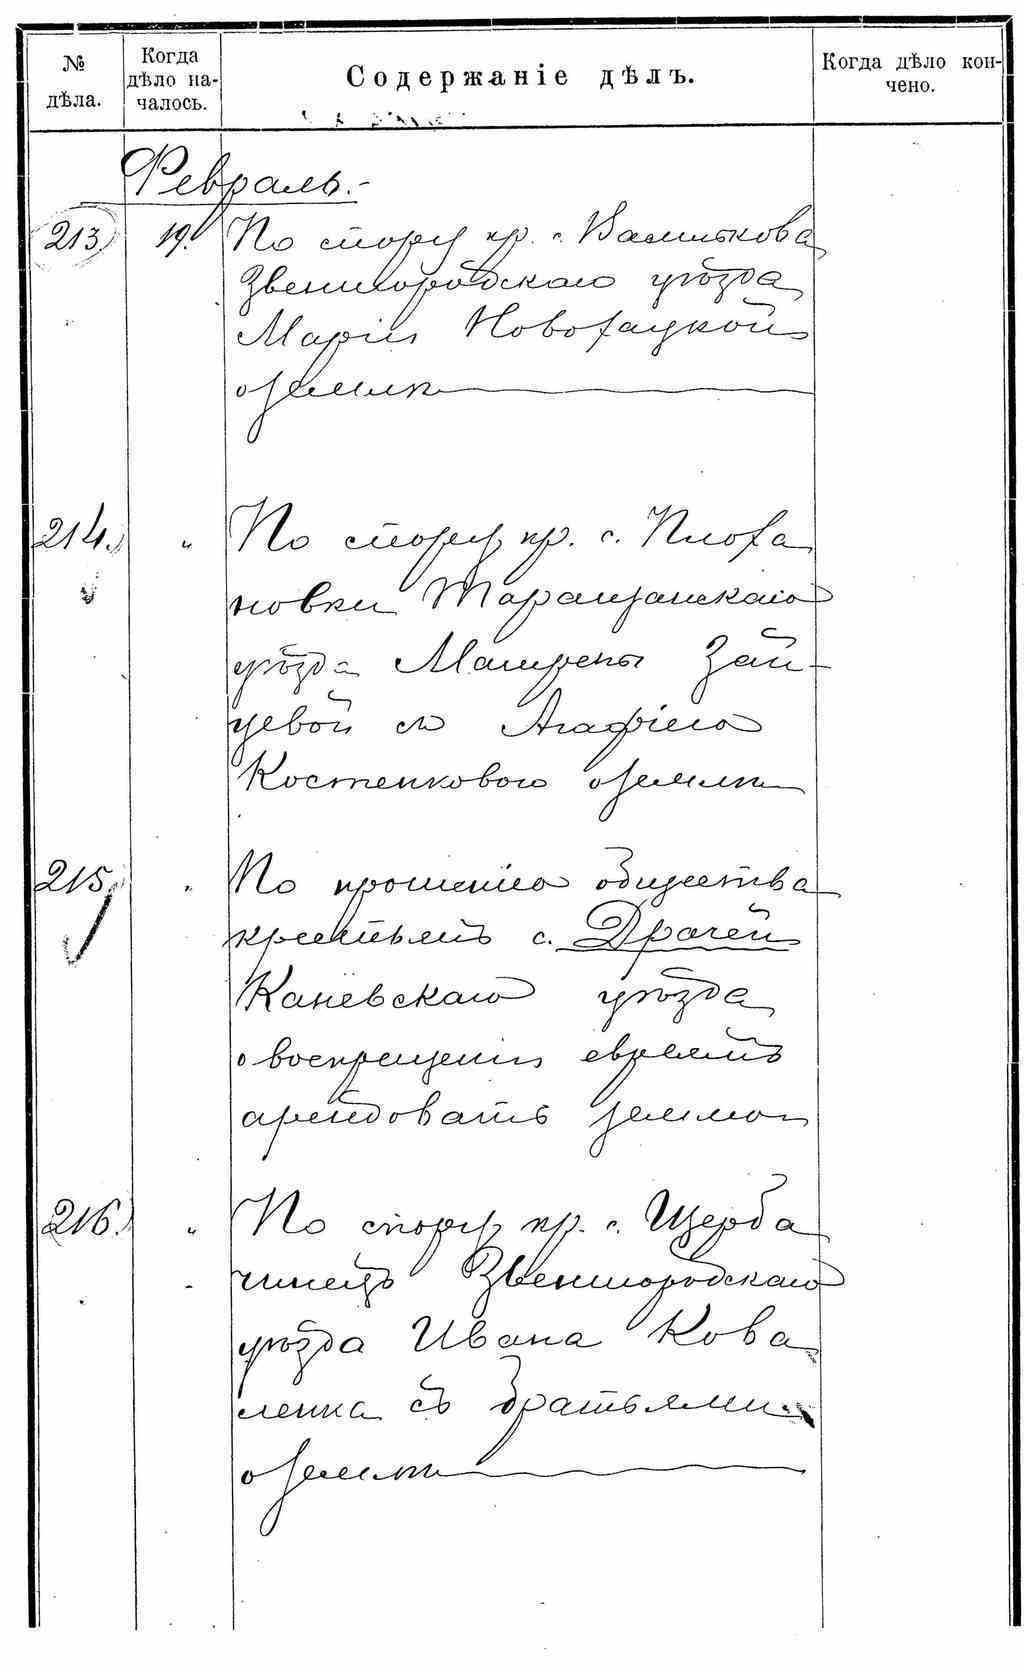 № дѣла.
Когда дѣло на-чалось.
Содержаніе дѣлъ.
Когда дѣло кон-чено.
Февраль.-
213. 19. По спору кр. с. Василькова
Звенигородскаго уѣзда
Маріи Новохацкой
о землѣ
214. „ По спору кр. с. Плоха
новки Таращанскаго
уѣзда Матрены Зай-
цевой съ Агафіею
Костенковою о землѣ
215. „ По прошенію общества
крестьянъ с. Драчей
Каневскаго уѣзда
о воспрещеніи евреямъ
арендовать землю
216. „ По спору кр. с. Щерба
чинецъ Звенигородскаго
уѣзда Ивана Кова
ленка съ братьями
о землѣ